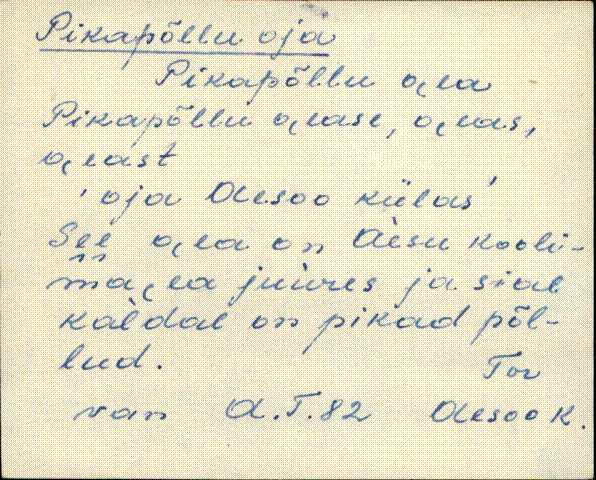 Pikapõllu oja
Pikapõllu o̬ia
Pikapõllu o̬iase, o̬ias,
o̬iast
'oja Aesoo külas'
See o̬ia on Aèsu kooli-
ma̬ia juures ja sial
kaldal on pikad põl-
lud.
Tor
van A.T.82 Aesoo K.